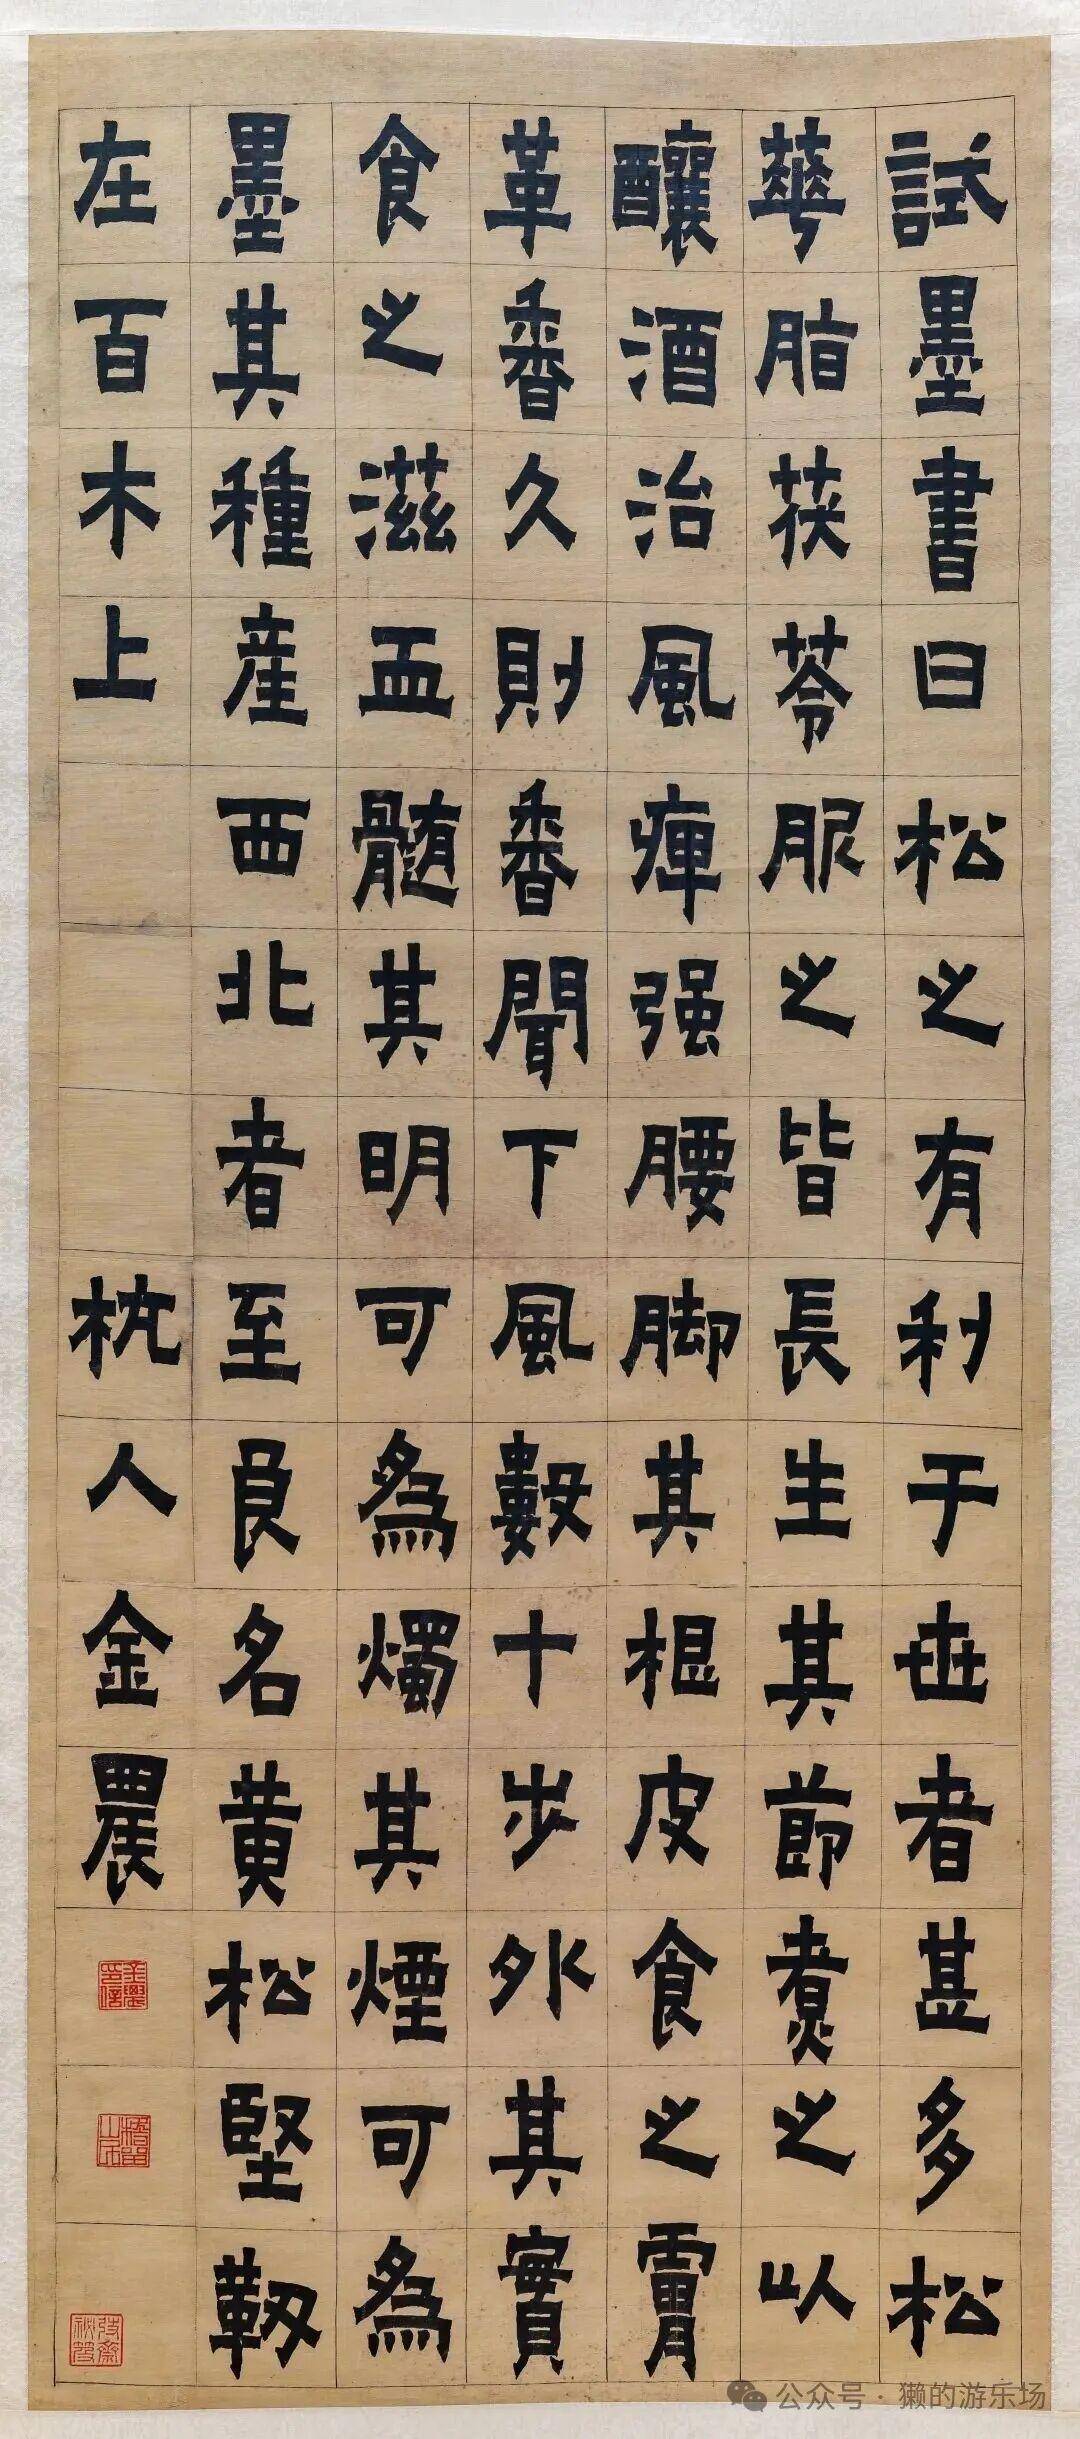 試墨書曰松之有利于世者甚多松
華脂茯苓服之皆長生其節煮之以
釀酒治風痺强腰脚其根皮食之膚
革香久則香聞下風數十步外其實
食之滋血髓其明可爲燭其煙可爲
墨其種産西北者至良名黄松堅靭
在百木上
杭人金農
金農印信
稽留山民
公众号·獭的游乐场